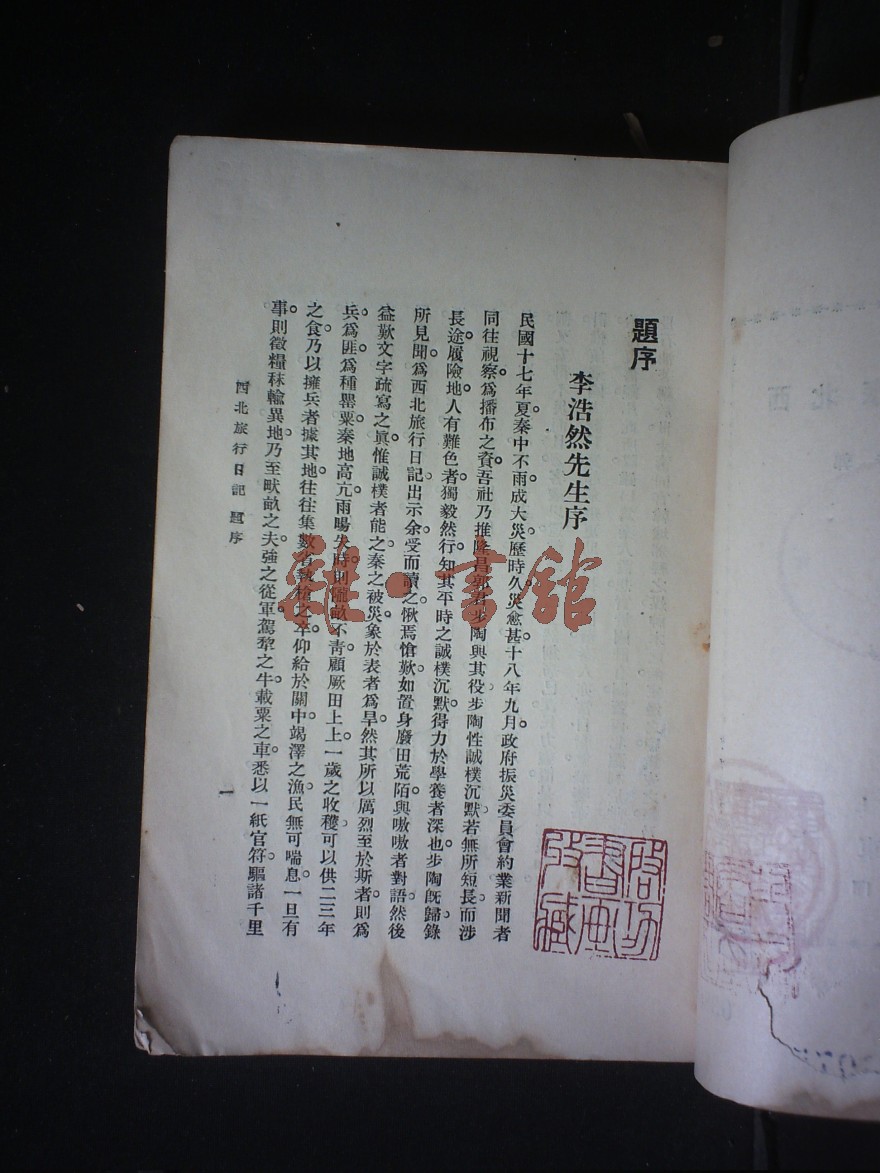 題序
李浩然先生序
民國十七年夏秦中不雨成大災。歷時久災愈甚十八年九月政府振災委員會約業新聞者
同往視察為播布之資吾社乃推隆昌郭君步陶與其役步陶性誠樸沉默若無所短長而涉
長途履險地人有難色者獨毅然行。知其平時之誠樸沉默得力於學養者深也步陶既歸錄
所見聞為西北旅行日記出示余受而讀之愀焉愴歎如置身廢田荒陌與嗷嗷者對語然後
益歎文字疏寫之眞惟誠樸者能之秦之被災象於表者為旱然其所以厲烈至於斯者則為
兵為匪為種罌粟秦地高亢雨暘失時則隴畝不靑顧厥田上上一歲之收穫可以供二三年
之食。乃以擁兵者據其地往往集數省執槍之卒仰給於關中。竭澤之漁民無可喘息一旦有
事。則徵糧秣輸異地乃至畎畝之夫強之從軍駕犂之牛載粟之車。悉以一紙官符驅諸千里
西北旅行日記 題序
一
啓功
書畫
攷藏
雜·書館
西北